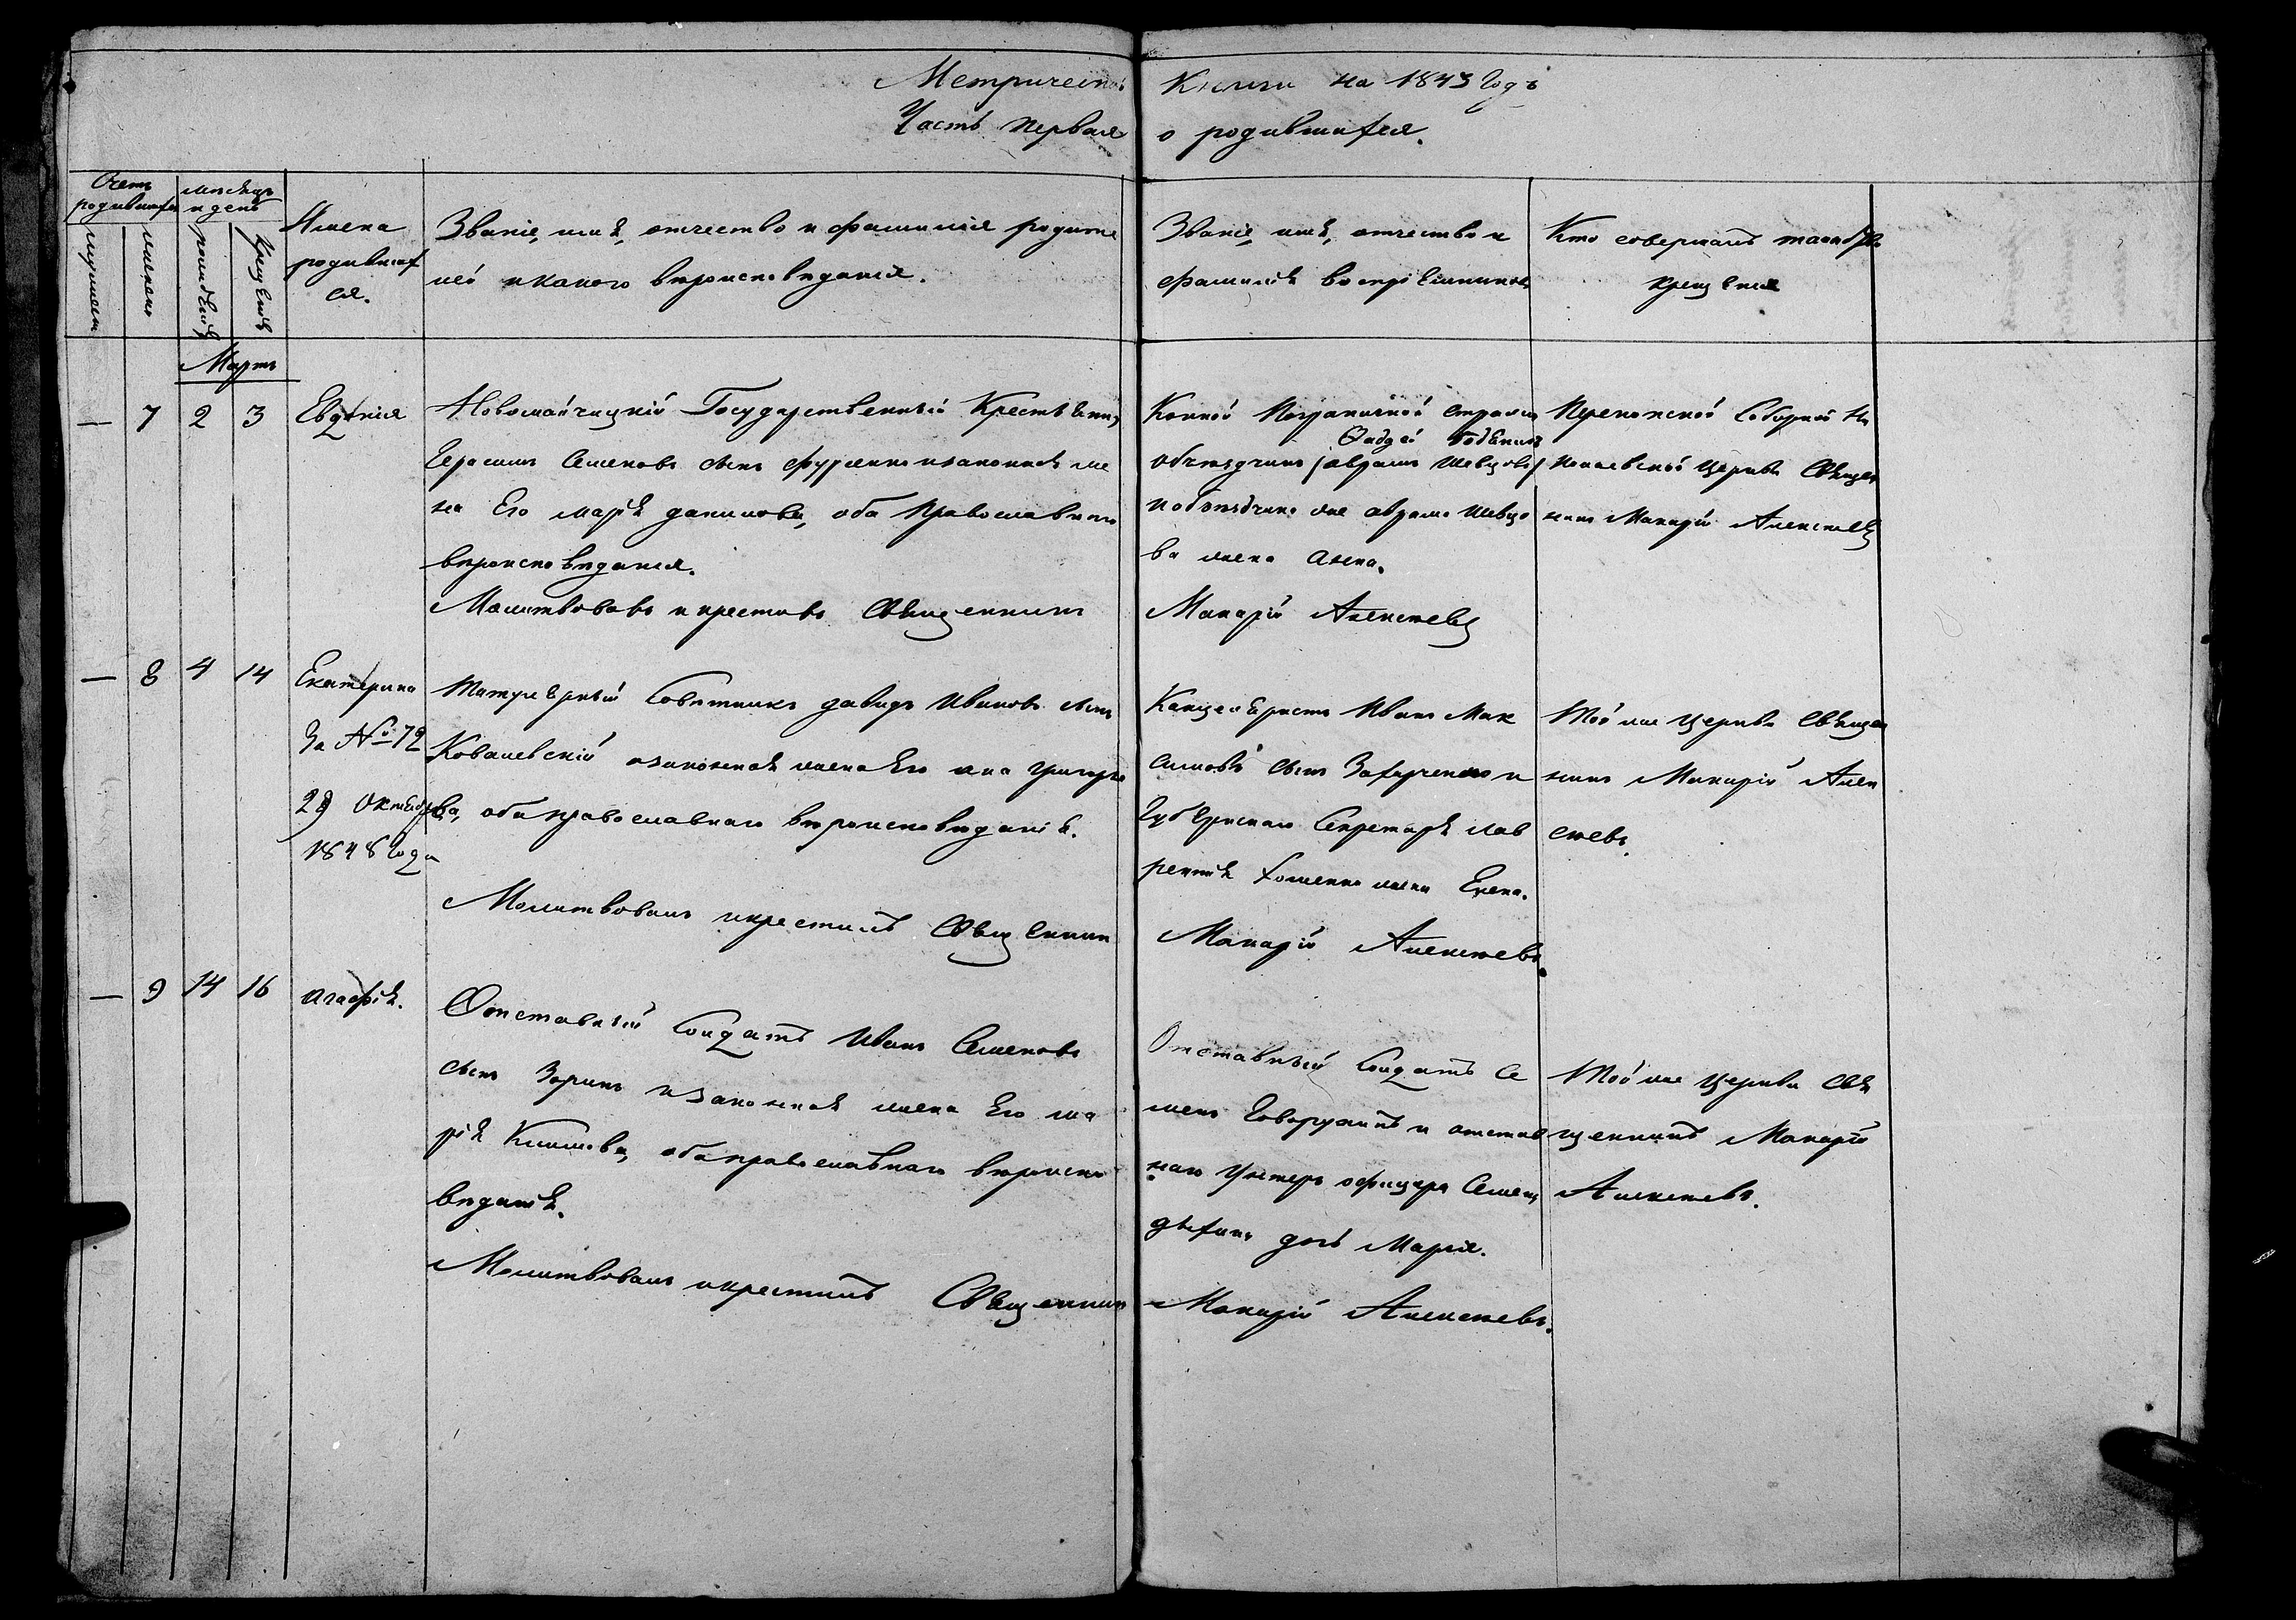 Метрической Книги на 1843 Годъ
Часть первая о родившихся.
Счетъ родившихся
мѣсяцъ и день
мужеска
женска
рожденія
крещенія
Имена
родивших
ся.
Званіе, имя, отчество и фамилія родите
лей и какого вѣроисповѣданія.
Званіе, имя, отчество и
фамилія воспріемниковъ
Кто совершалъ таинство
крещенія
Мартъ
— 7 2 3
Евдокія
Государственный Крестьянинъ
Герасимъ Семеновъ сынъ и законная же
на Его Марія данилова, оба Православнаго
вѣроисповѣданія.
Молитвовалъ и крестилъ Священникъ
Конной Пограничной стражи
Фадей
объездчикъ аврамъ Шевцовъ
и объѣздчика же аврама Шевцо
ва жена Анна.
Макарій Алексѣевъ
Перекопской Соборной Ни
колаевской Церкви Священ
никъ Макарій Алексѣевъ
— 8 4 14
Екатерина
За № 72
29 Октября
1848 Года
Титулярный Совѣтникъ давидъ Ивановъ сынъ
Ковалевскій и законная жена Его Григорье
ва, оба православнаго вѣроисповѣданія.
Молитвовалъ и крестилъ Священник
Канцеляристъ Иванъ Мак
симовъ сынъ Захарченко и
Губернскаго Секретаря Лав
рентія Хоменко жена Елена.
Макарій Алексѣевъ.
Той же Церкви Священ
никъ Макарій Алек
сѣевъ.
— 9 14 16
Агафія.
Отставный Солдатъ Иванъ Семеновъ
сынъ Заринъ и законная жена Его Ма
рія Климова, оба православнаго вѣроиспо
вѣданія.
Молитвовалъ и крестилъ Священник
Отставный Солдатъ Се
менъ и отстав
наго Унтеръ офицера Семена
дочь Марія.
Макарій Алексѣевъ.
Той же Церкви Свя
щенникъ Макарій
Алексѣевъ.